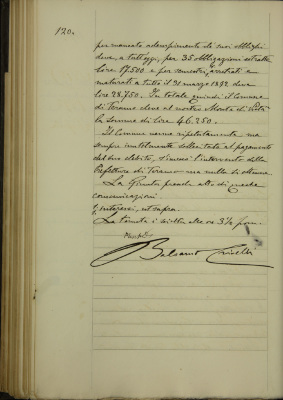 120.
per mancato adempimento de' suoi obblighi
deve a tutt'oggi, per 35 obbligazioni estratte
Lire 17.500 e per semestri, arretrati e
maturati a tutto il 31 marzo 1892 deve
lire 28.750. In totale quindi il Comune
di Teramo deve al nostro Monte di Pietà
la somma di lire 46.250.
Il Comune venne ripetutamente ma
sempre inutilmente sollecitato al pagamento
del suo debito, l'intervento della
Prefettura di Teramo ma nulla si ottenne.
La Giunta prende atto di queste
comunicazioni.
ut supra.
La seduta è sciolta alle ore 3½ pom.
Balsamo Crivelli